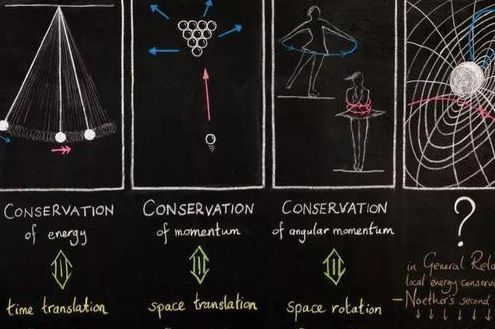 CONSERVATION
of energy
time translation
CONSERVATION
of momentum
space translation
CONSERVATION
of angular momentum
space rotation
?
in General
local energy
Noether's second